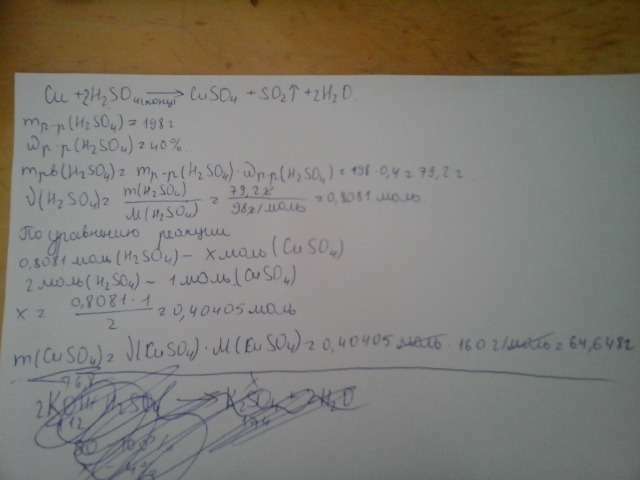 Cu + 2H₂SO₄(конц) → CuSO₄ + SO₂↑ + 2H₂O.
mр-р(H₂SO₄) = 198г
ωр-р(H₂SO₄) = 40%.
mрв(H₂SO₄) = mр-р(H₂SO₄)·ωр-р(H₂SO₄) = 198·0,4 = 79,2г.
ν(H₂SO₄) = m(H₂SO₄)/M(H₂SO₄) = 79,2г/98г/моль = 0,8081 моль
По уравнению реакции
0,8081 моль (H₂SO₄) – x моль (CuSO₄)
2 моль (H₂SO₄) – 1 моль (CuSO₄)
x = 0,8081·1/2 = 0,40405 моль
m(CuSO₄) = ν(CuSO₄)·M(CuSO₄) = 0,40405 моль · 160 г/моль = 64,648г
2KOH + H₂SO₄ → K₂SO₄ + 2H₂O
112 174